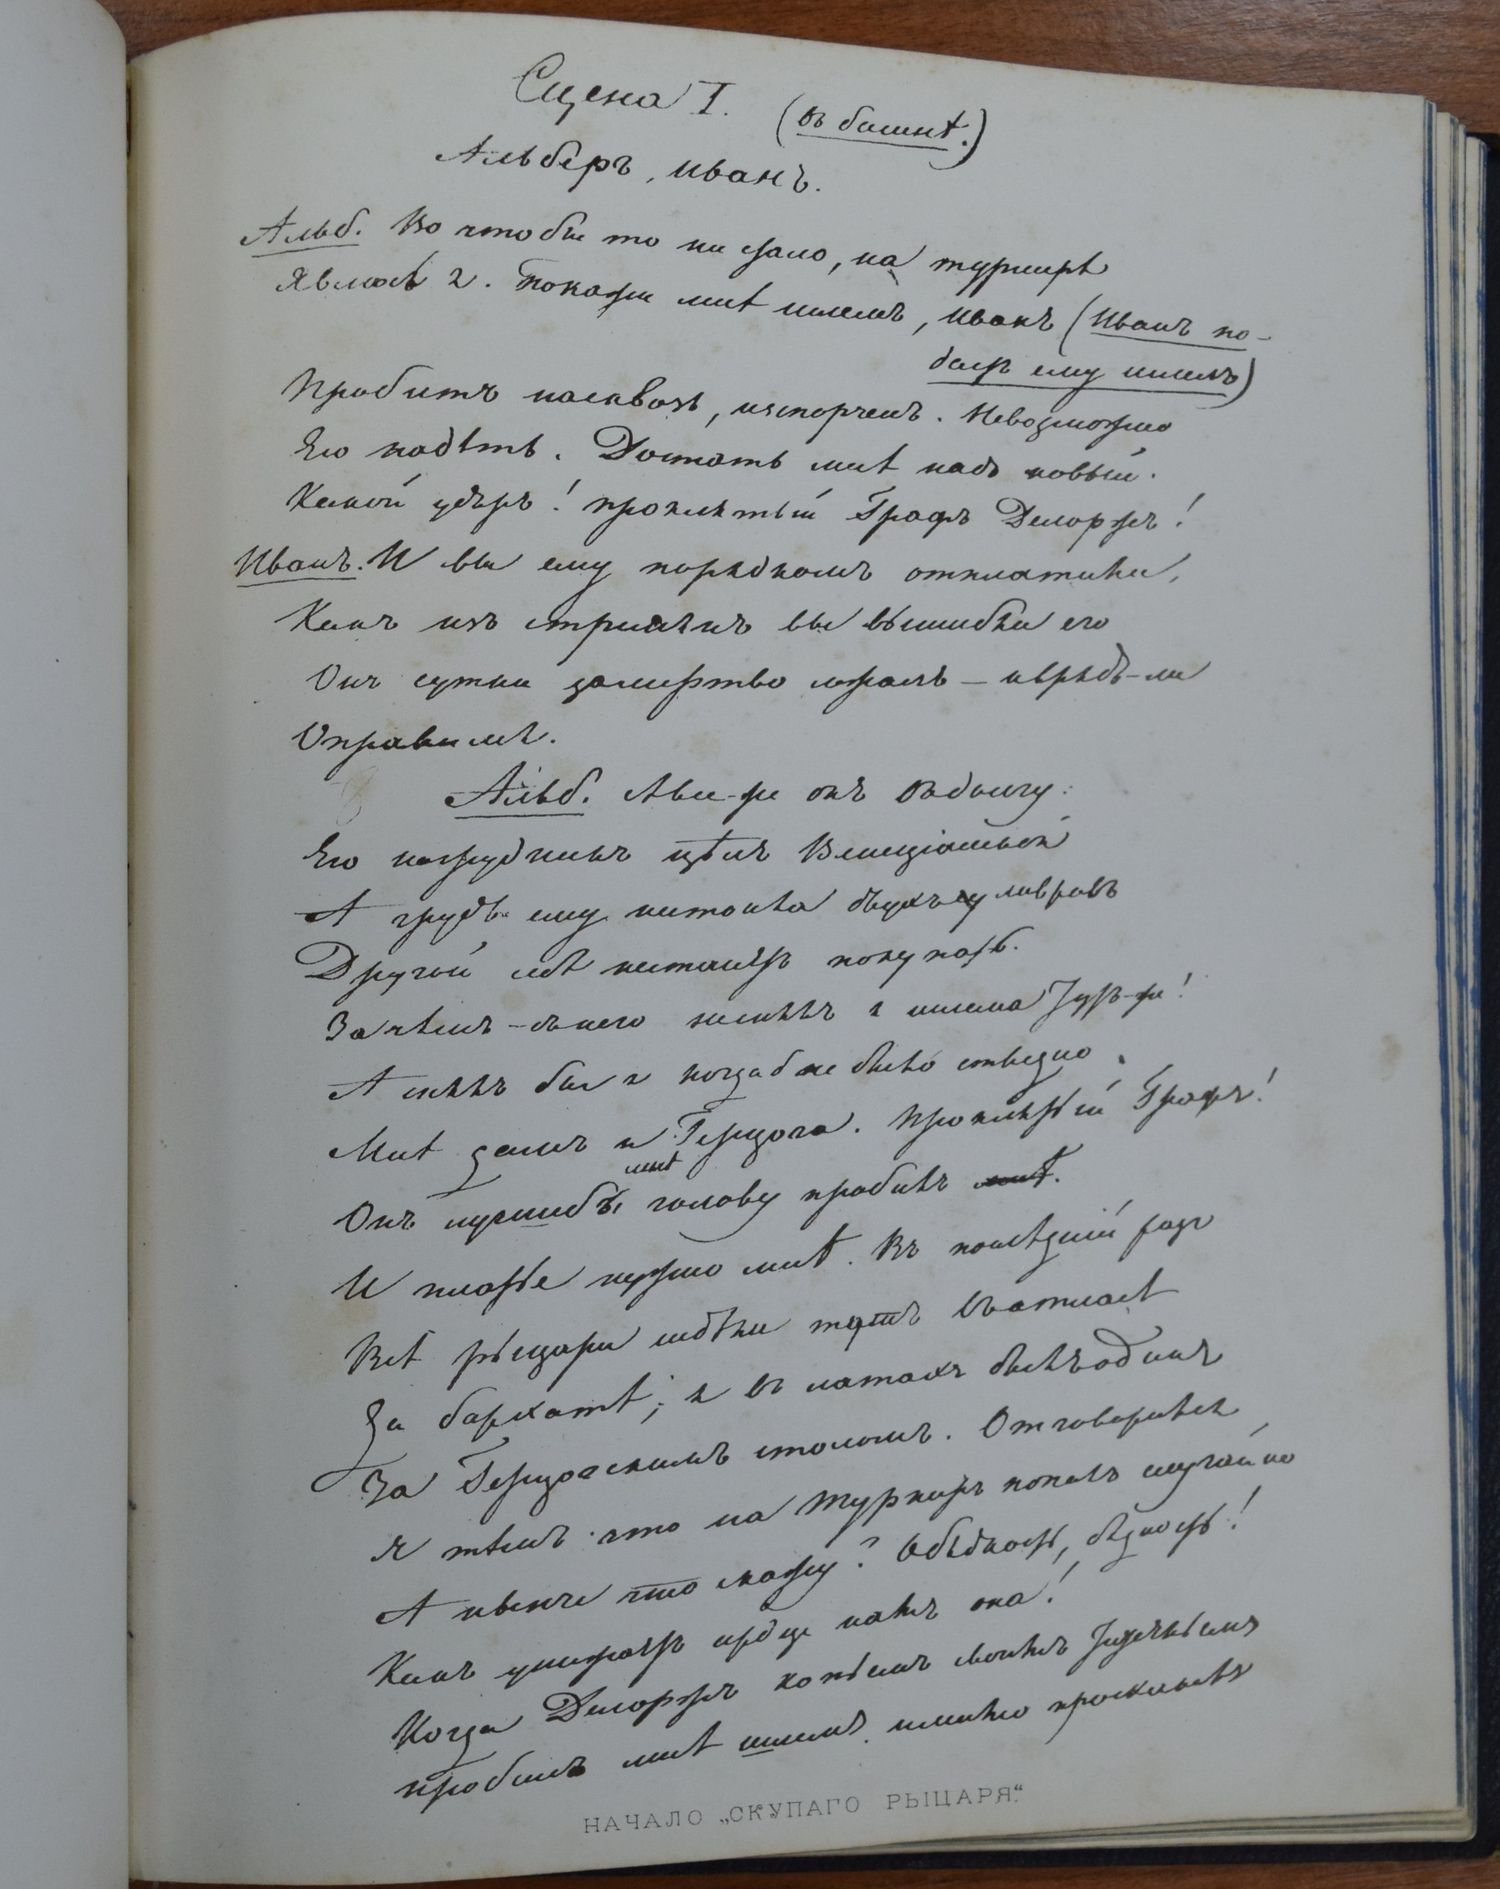 Сцена I.
(въ башнѣ.)
Альберъ, Иванъ.
Альб. Во что бы то ни стало, на турнирѣ
Явлюсь я. Покажи мнѣ шлемъ, Иванъ (Иванъ по-
даетъ ему шлемъ)
Пробитъ насквозь, испорченъ. Невозможно
Его надѣть. Достать мнѣ надо новый.
Какой ударъ! проклятый Графъ Делоржъ!
Иванъ. И вы ему порядкомъ отплатили,
Какъ изъ стремянъ вы вышибли его
Онъ сутки замертво лежалъ — и врядъ-ли
Оправился.
Альб. А все-же онъ въ
Его нагрудникъ цѣлъ Венеціанской
А грудь ему ни стоила
Другой себѣ не станетъ покупать.
Зачѣмъ съ него не снялъ я шлема тутъ-же!
А снялъ бы я когдаб не было стыдно
Мнѣ дамъ и Герцога. Проклятый Графъ!
Онъ лучшебъ мнѣ голову пробилъ мнѣ.
И платье нужно мнѣ. Въ послѣдній разъ
Всѣ рыцари сидѣли тутъ въ атласѣ
Да бархатѣ; я въ латахъ былъ одинъ
За Герцогскимъ столомъ. Отговорился
Я тѣмъ что на турниръ попалъ случайно
А нынче что скажу? О бѣдность, бѣдность!
Какъ унижаетъ сердце намъ она!
Когда Делоржъ копьемъ своимъ тяжелымъ
пробилъ мнѣ шлемъ и мимо проскакалъ
НАЧАЛО „СКУПАГО РЫЦАРЯ.“